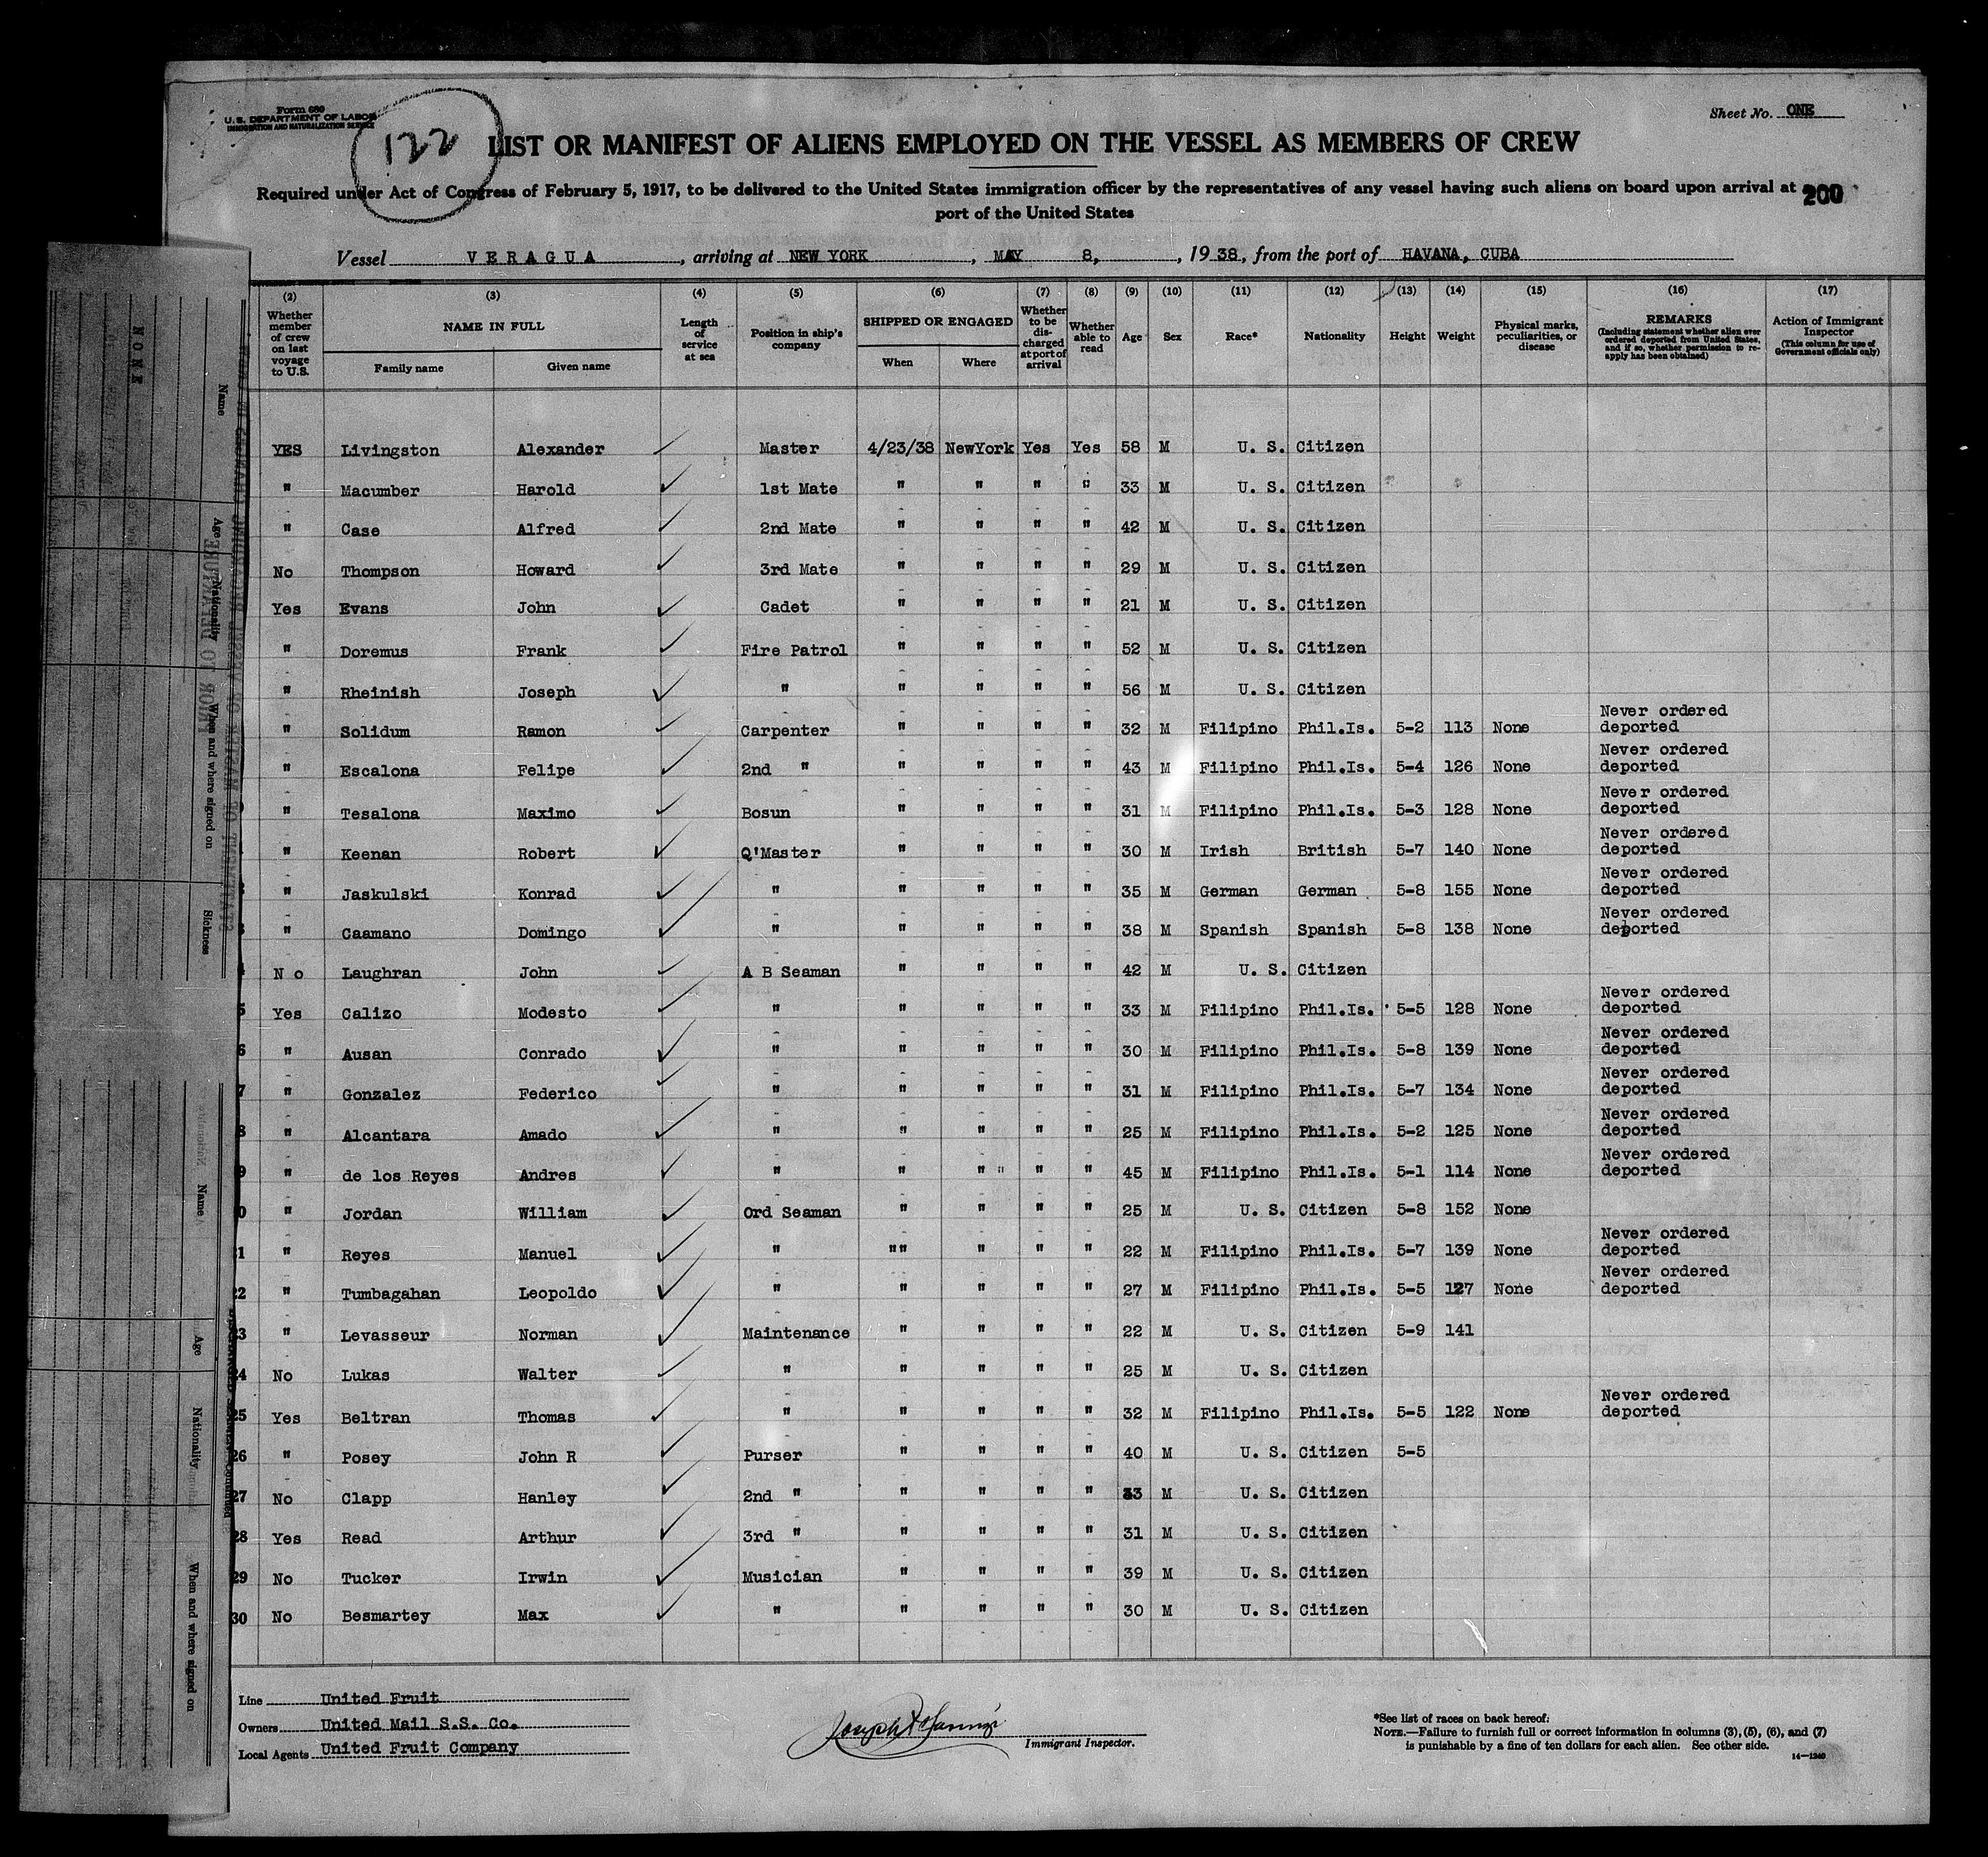 Form 680
U. S. DEPARTMENT OF LABOR
IMMIGRATION AND NATURALIZATION SERVICE
122
Sheet No. ONE
LIST OR MANIFEST OF ALIENS EMPLOYED ON THE VESSEL AS MEMBERS OF CREW
Required under Act of Congress of February 5, 1917, to be delivered to the United States immigration officer by the representatives of any vessel having such aliens on board upon arrival at
200
port of the United States
Vessel VERAGUA, arriving at NEW YORK, MAY 8, 1938, from the port of HAVANA, CUBA
(2) (3) (4) (5) (6) (7) (8) (9) (10) (11) (12) (13) (14) (15) (16) (17)
Whether member of crew on last voyage to U.S. NAME IN FULL Family name Given name Length of service at sea Position in ship's company SHIPPED OR ENGAGED When Where Whether to be discharged at port of arrival Whether able to read Age Sex Race* Nationality Height Weight Physical marks, peculiarities, or disease REMARKS (Including statement whether alien ever ordered deported from United States, and if so, whether permission to reapply has been obtained) Action of Immigrant Inspector (This column for use of Government officials only)
YES Livingston Alexander Master 4/23/38 NewYork Yes Yes 58 M U. S. Citizen
" Macumber Harold 1st Mate " " " " 33 M U. S. Citizen
" Case Alfred 2nd Mate " " " " 42 M U. S. Citizen
No Thompson Howard 3rd Mate " " " " 29 M U. S. Citizen
Yes Evans John Cadet " " " " 21 M U. S. Citizen
" Doremus Frank Fire Patrol " " " " 52 M U. S. Citizen
" Rheinish Joseph " " " " " 56 M U. S. Citizen
" Solidum Ramon Carpenter " " " " 32 M Filipino Phil.Is. 5-2 113 None Never ordered deported
" Escalona Felipe 2nd " " " " " 43 M Filipino Phil.Is. 5-4 126 None Never ordered deported
" Tesalona Maximo Bosun " " " " 31 M Filipino Phil.Is. 5-3 128 None Never ordered deported
" Keenan Robert Q'Master " " " " 30 M Irish British 5-7 140 None Never ordered deported
" Jaskulski Konrad " " " " " 35 M German German 5-8 155 None Never ordered deported
" Caamano Domingo " " " " " 38 M Spanish Spanish 5-8 138 None Never ordered deported
N o Laughran John A B Seaman " " " " 42 M U. S. Citizen
5 Yes Calizo Modesto " " " " " 33 M Filipino Phil.Is. 5-5 128 None Never ordered deported
6 " Ausan Conrado " " " " " 30 M Filipino Phil.Is. 5-8 139 None Never ordered deported
7 " Gonzalez Federico " " " " " 31 M Filipino Phil.Is. 5-7 134 None Never ordered deported
8 " Alcantara Amado " " " " " 25 M Filipino Phil.Is. 5-2 125 None Never ordered deported
9 " de los Reyes Andres " " " " " " 45 M Filipino Phil.Is. 5-1 114 None Never ordered deported
0 " Jordan William Ord Seaman " " " " 25 M U. S. Citizen 5-8 152 None
1 " Reyes Manuel " "" " " " 22 M Filipino Phil.Is. 5-7 139 None Never ordered deported
2 " Tumbagahan Leopoldo " " " " " 27 M Filipino Phil.Is. 5-5 127 None Never ordered deported
3 " Levasseur Norman Maintenance " " " " 22 M U. S. Citizen 5-9 141
24 No Lukas Walter " " " " " 25 M U. S. Citizen
25 Yes Beltran Thomas " " " " " 32 M Filipino Phil.Is. 5-5 122 None Never ordered deported
26 " Posey John R Purser " " " " 40 M U. S. Citizen 5-5
27 No Clapp Hanley 2nd " " " " " M U. S. Citizen
28 Yes Read Arthur 3rd " " " " " 31 M U. S. Citizen
29 No Tucker Irwin Musician " " " " 39 M U. S. Citizen
30 No Besmartey Max " " " " " 30 M U. S. Citizen
Line United Fruit
Owners United Mail S.S. Co.
Local Agents United Fruit Company
Immigrant Inspector.
*See list of races on back hereof.
NOTE.—Failure to furnish full or correct information in columns (3), (5), (6), and (7)
is punishable by a fine of ten dollars for each alien. See other side.
14—1240
NONE
Name
Age
Nationality
When and where signed on
Sickness
Name
Age
Nationality
When and where signed on